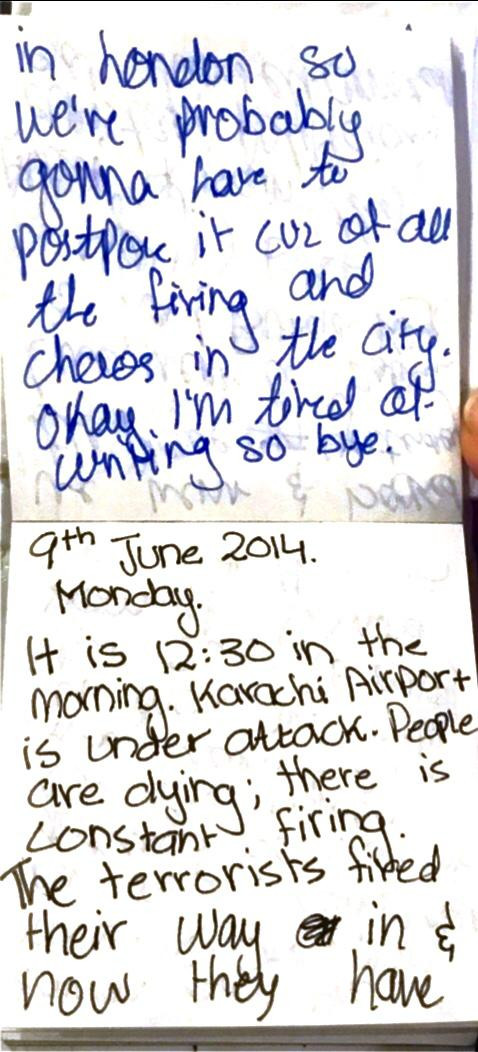 in London so
we're probably
gonna have to
postpone it cuz of all
the firing and
chaos in the city.
okay. I'm tired of
writing so bye.
9th June 2014.
Monday.
It is 12:30 in the
morning. Karachi Airport
is under attack. People
are dying; there is
constant firing.
The terrorists fired
their way in &
now they have